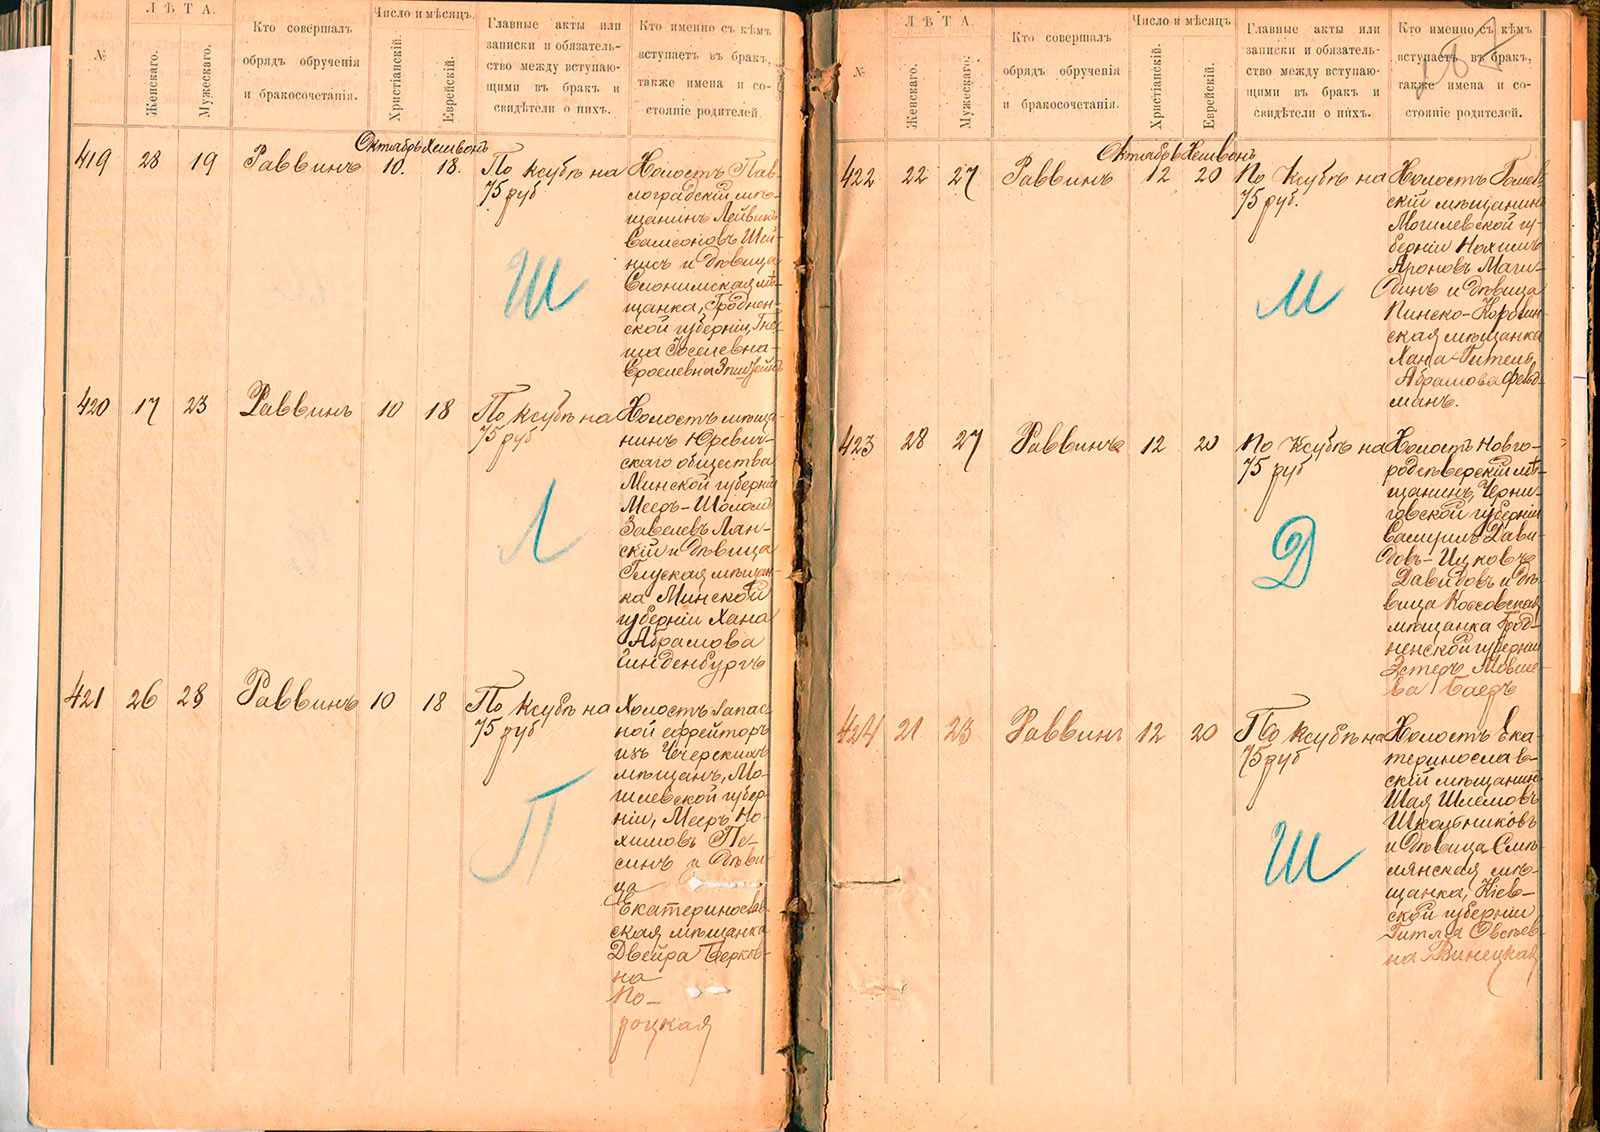 №
ЛѢТА.
Женскаго.
Мужескаго.
Кто совершалъ
обрядъ обрученія
и бракосочетанія.
Число и мѣсяцъ.
Христіанскій.
Еврейскій.
Главные акты или
записки и обязатель-
ство между вступаю-
щими въ бракъ и
свидѣтели о нихъ.
Кто именно съ кѣмъ
вступаетъ въ бракъ,
также имена и со-
стояніе родителей.
Октябрь Хешвонъ
419 28 19 Раввинъ 10. 18. По ксубѣ на
75 руб
Холостъ Пав-
лоградскій мѣ-
щанинъ Лейвикъ
Самсоновъ Шей-
нисъ и дѣвица
Слонимская мѣ-
щанка, Гроднен-
ской губерніи, Гне-
ша Іоселевна-
Сроелевна
Ш
420 17 23 Раввинъ 10 18 По ксубѣ на
75 руб
Холостъ мѣща-
нинъ Юревич-
скаго общества
Минской губерніи
Мееръ-Шоломъ
Завелевъ Лян-
скій и дѣвица
Глуская мѣщан-
ка Минской
губерніи Хана
Абрамова
Гинденбургъ
Л
421 26 28 Раввинъ 10 18 По ксубѣ на
75 руб
Холостъ запас-
ной ефрейторъ
изъ Чечерскихъ
мѣщанъ, Мо-
гилевской губер-
ніи, Мееръ Но-
химовъ Пе-
синъ и дѣви-
ца
Екатеринослав-
ская мѣщанка
Двейра Берков-
на
По-
роцкая
П
№
ЛѢТА.
Женскаго.
Мужескаго.
Кто совершалъ
обрядъ обрученія
и бракосочетанія.
Число и мѣсяцъ
Христіанскій.
Еврейскій.
Главные акты или
записки и обязатель-
ство между вступаю-
щими въ бракъ и
свидѣтели о нихъ.
Кто именно съ кѣмъ
вступаетъ въ бракъ,
также имена и со-
стояніе родителей.
Октябрь Хешвонъ
422 22 27 Раввинъ 12 20 По ксубѣ на
75 руб.
Холостъ Гомель-
скій мѣщанинъ
Могилевской гу-
берніи Нохимъ
Ароновъ Маги-
динъ и дѣвица
Пинско-Каролин-
ская мѣщанка
Хана-Гитель
Абрамова Фельд-
манъ.
М
423 28 27 Раввинъ 12 20 По ксубѣ на
75 руб
Холостъ Новго-
родсѣверскій мѣ-
щанинъ, Черни-
говской губерніи
Самуилъ Дави-
довъ-Ицковъ
Давидовъ и дѣ-
вица Коссовская
мѣщанка Грод-
ненской губерніи
Эстеръ Мовше-
ва Баеръ
Д
424 21 23 Раввинъ 12 20 По ксубѣ на
75 руб
Холостъ Ека-
теринослав-
скій мѣщанинъ
Шая Шлемовъ
Школьниковъ
и дѣвица Смѣ-
лянская мѣ-
щанка, Кіев-
ской губерніи,
Гитля Овсѣев-
на Винецкая
Ш